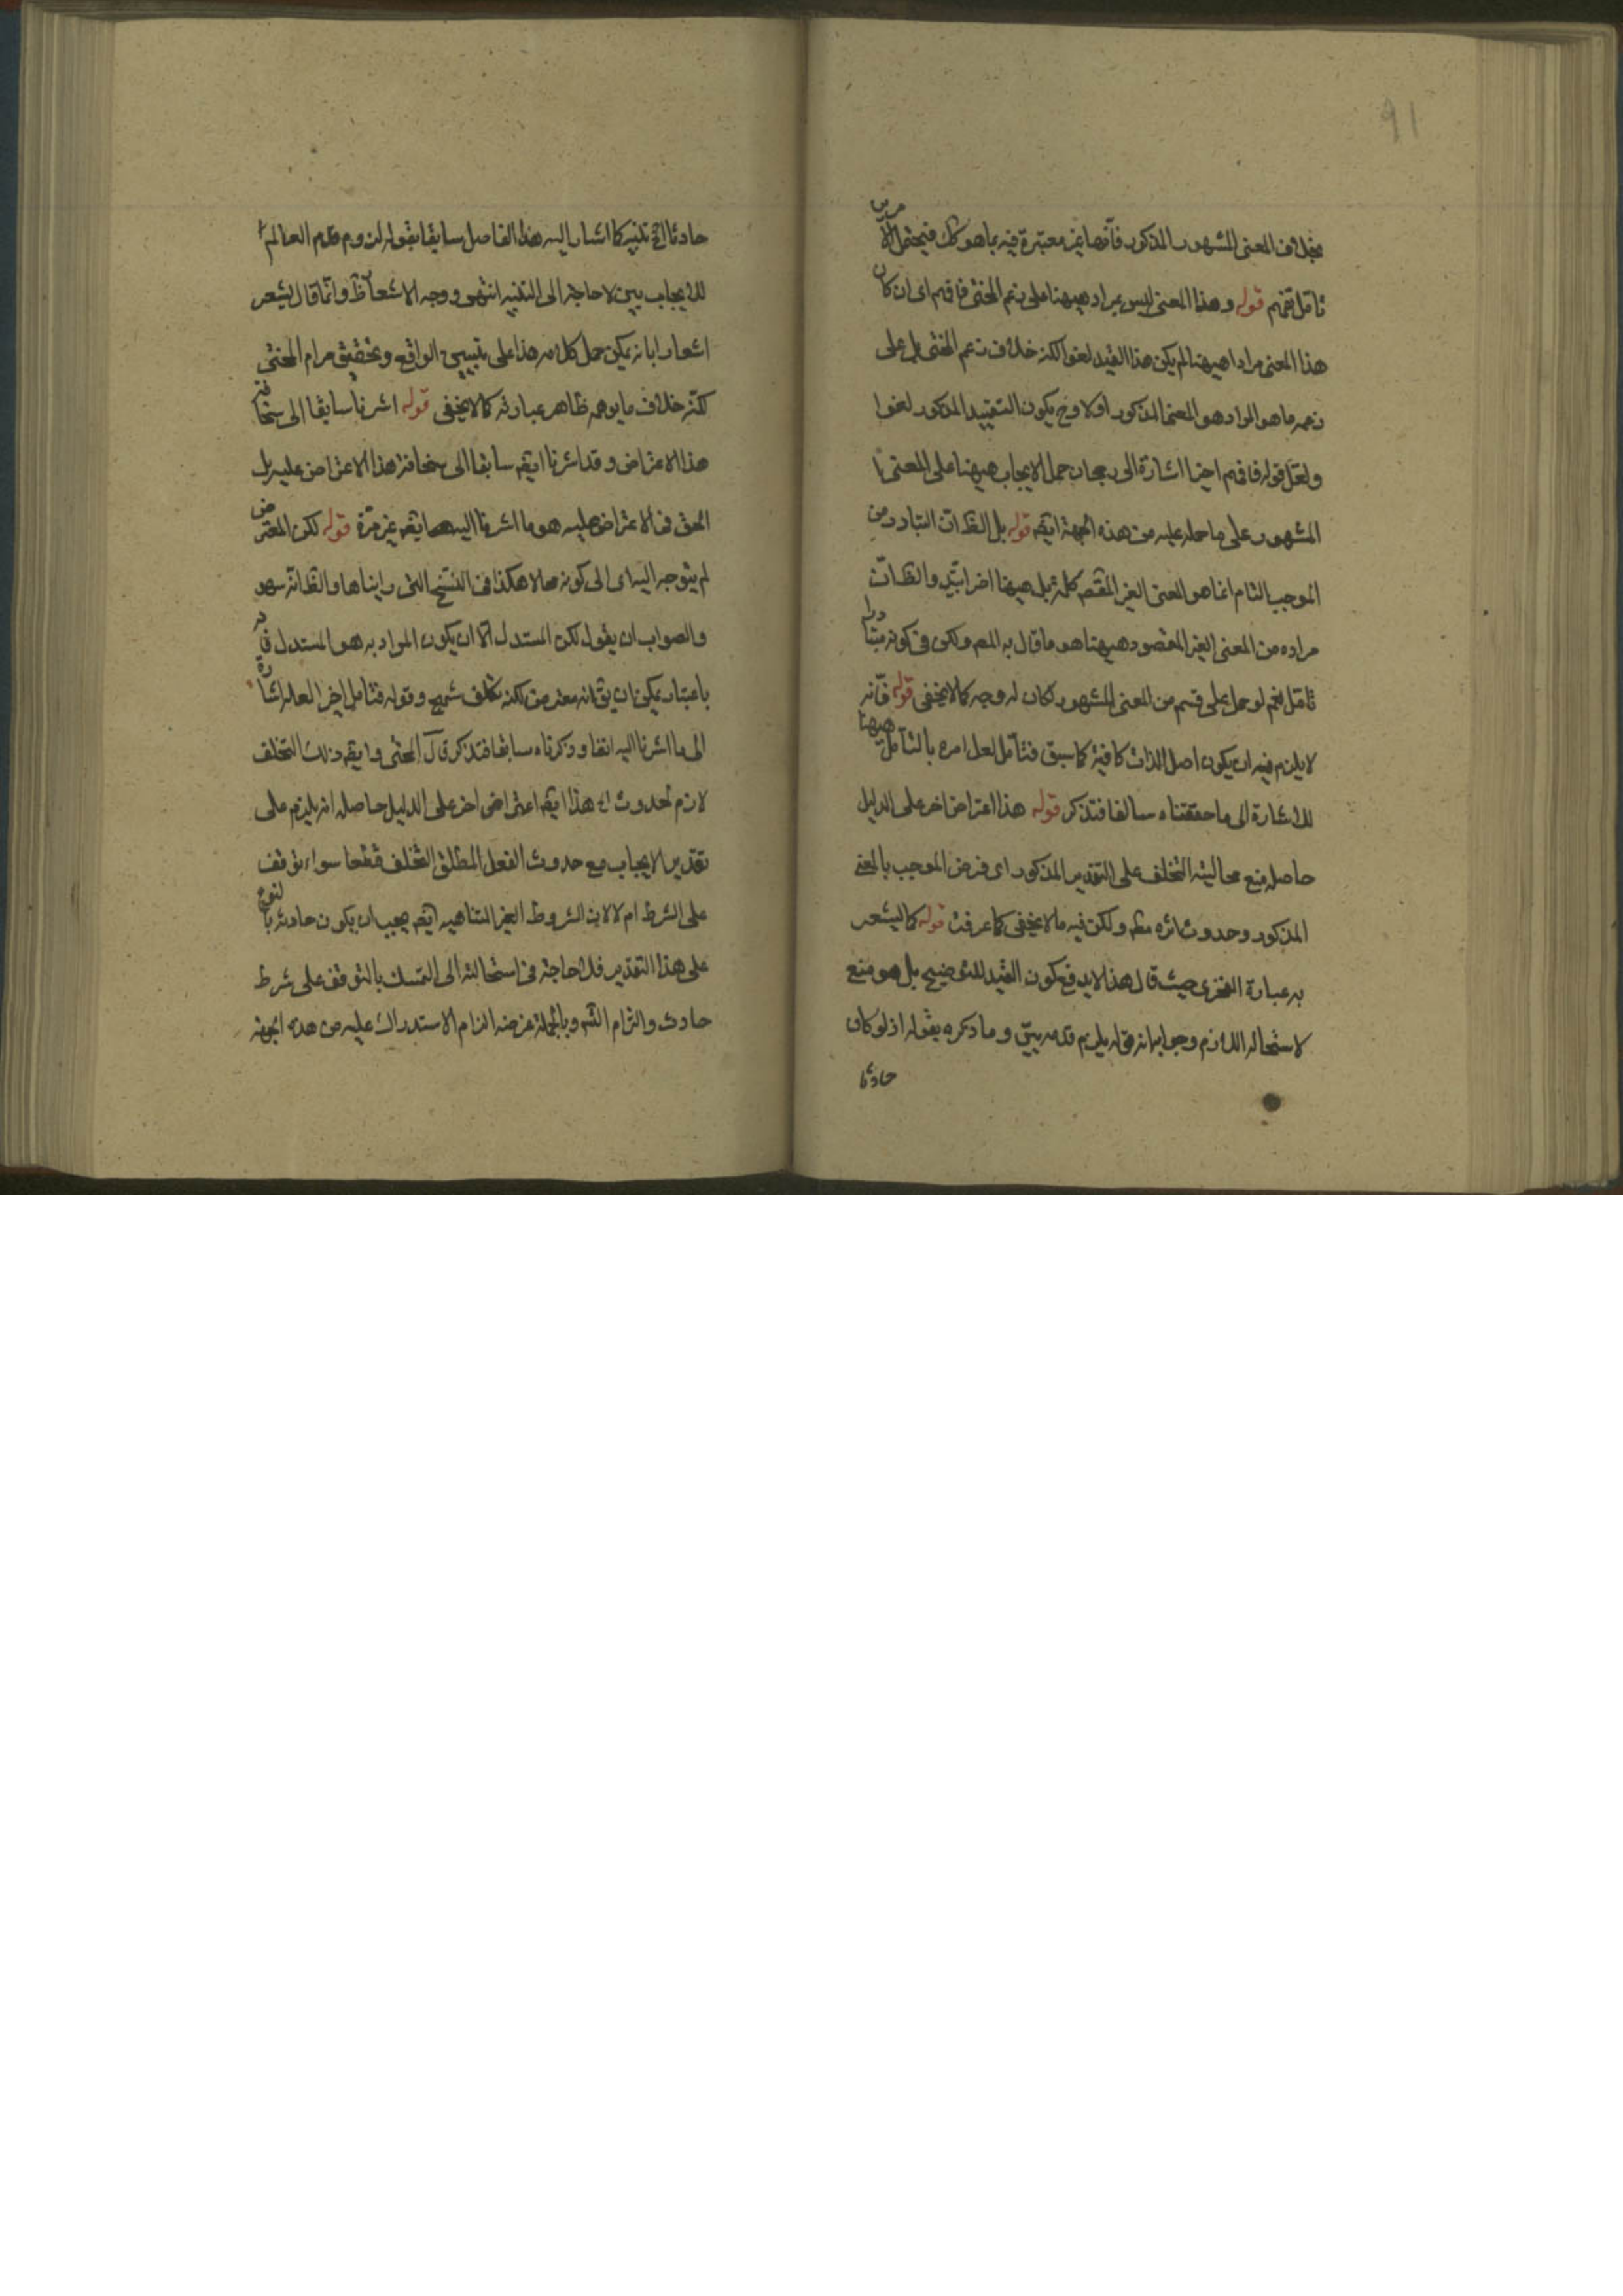 91
بخلاف المعنى المشهور المذكور فانها غير معتبرة فيه بما هو كك فيحتمل الامرين
تامل تفهم قوله وهذا المعنى ليس بمراد هيهنا على زعم المحشى فافهم اى ان كان
هذا المعنى مرادا هيهنا لم يكن هذا القيد لغوا لكنه خلاف زعم المحشى بل على
زعمه ما هو المراد هو المعنى المذكور اولا وح يكون التقييد المذكور لغوا
ولعل قوله فافهم اخيرا اشارة الى رجحان حمل الايجاب هيهنا على المعنى
المشهور على ما حمله عليه من هذه الجهة ايضه قوله بل الظ ان المتبادر من
الموجب التام انما هو المعنى الغير المقصم كلمة بل هيهنا اضرابية والظ ان
مراده من المعنى الغير المقصود هيهنا هو ما قال به المصم ولكن فى كونه متبادرا
تامل نعم لو حمل على قسم من المعنى المشهور لكان له وجه كما لا يخفى قوله فانه
لا يلزم فيه ان يكون اصل الذات كافية كما سبق فتامل لعل امره بالتامل هيهنا
للاشارة الى ما حققناه سالفا فتذكر قوله هذا اعتراض اخر على الدليل
حاصله منع محالية التخلف على التقدير المذكور اى فرض الموجب بالمعنى
المذكور وحدوث اثره مطم ولكن فيه ما لا يخفى كما عرفت قوله كما ليشعر
به عبارة الفخرى حيث قال هذا لا يدفع كون القيد للتوضيح بل هو منع
لاستحالة اللازم وجوابه انه يلزم قدمه بين وما ذكره بقوله اذ لو كان
حادثا
حادثا الخ تنبيه كما اشار اليه هذا الفاضل سابقا بقوله لزوم قدم العالم
للايجاب بين لا حاجة الى التنبيه انتهى ووجه الاشعار ظ وانما قال ليشعر
اشعارا بانه يمكن حمل كلامه هذا على تبيين الواقع وتحقيق مرام المحشى
لكنه خلاف ما يوهمه ظاهر عبارته كما لا يخفى قوله اشرنا سابقا الى سخافة
هذا الاعتراض وقد اشرنا ايضه سابقا الى سخافة هذا الاعتراض عليه بل
الحق فى الاعتراض عليه هو ما اشرنا اليه سابقه غير مرة قوله لكن المعترض
لم يتوجه اليه اى الى كونه محالا هكذا فى النسخ التى رايناها والظ انه سهو
والصواب ان يقول لكن المستدل الا ان يكون المراد به هو المستدل فانه
باعتبار يمكن ان يق انه معترض لكنه تكلف سمج وقوله فتامل اخيرا لعله اشارة
الى ما اشرنا اليه انفا وذكرناه سابقا فتذكر قال المحشى وايضه ذلك التخلف
لازم لحدوث اه هذا ايضه اعتراض اخر على الدليل حاصله انه يلزم على
تقدير الايجاب مع حدوث الفعل المطلق التخلف قطعا سواء توقف
على الشرط ام لا لان الشروط الغير المتناهية ايضه يجب ان يكون حادثة بالنوع
على هذا التقدير فلا حاجة فى استحالته الى التمسك بالتوقف على شرط
حادث والتزام التس وبالجملة غرضه الزام الاستدراك عليه من هذه الجهة